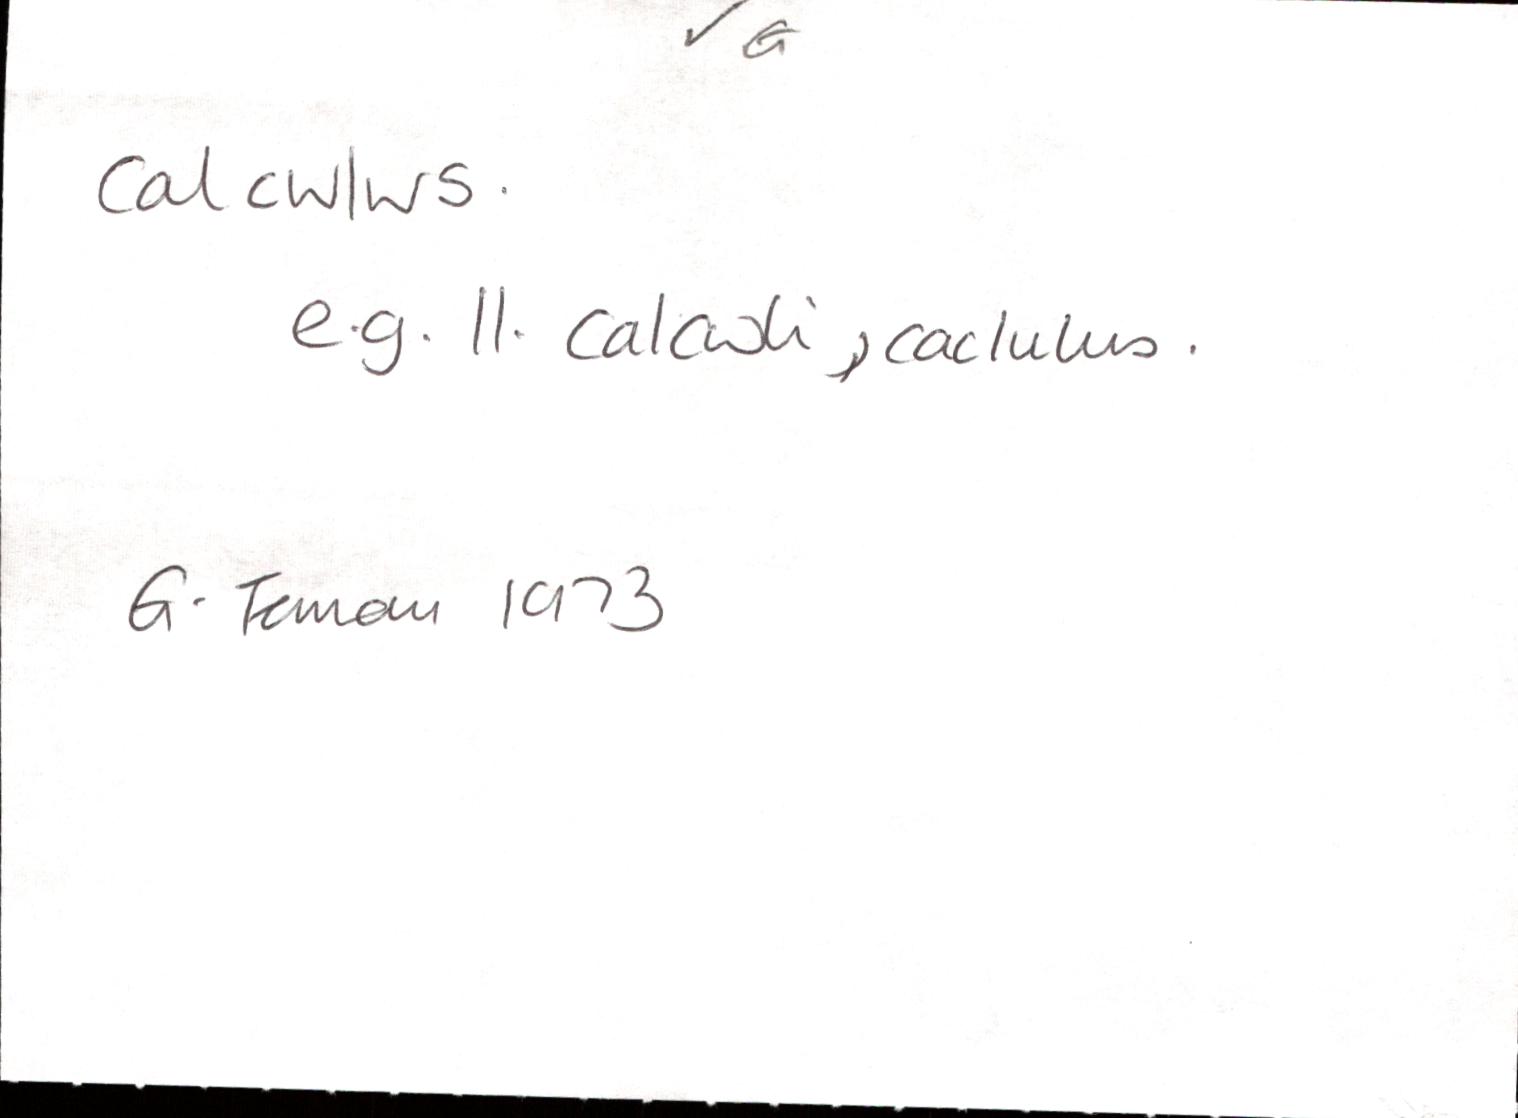 ✓ G
calcwlws.
e.g. ll. calcwli, caclulus.
G. Temau 1973